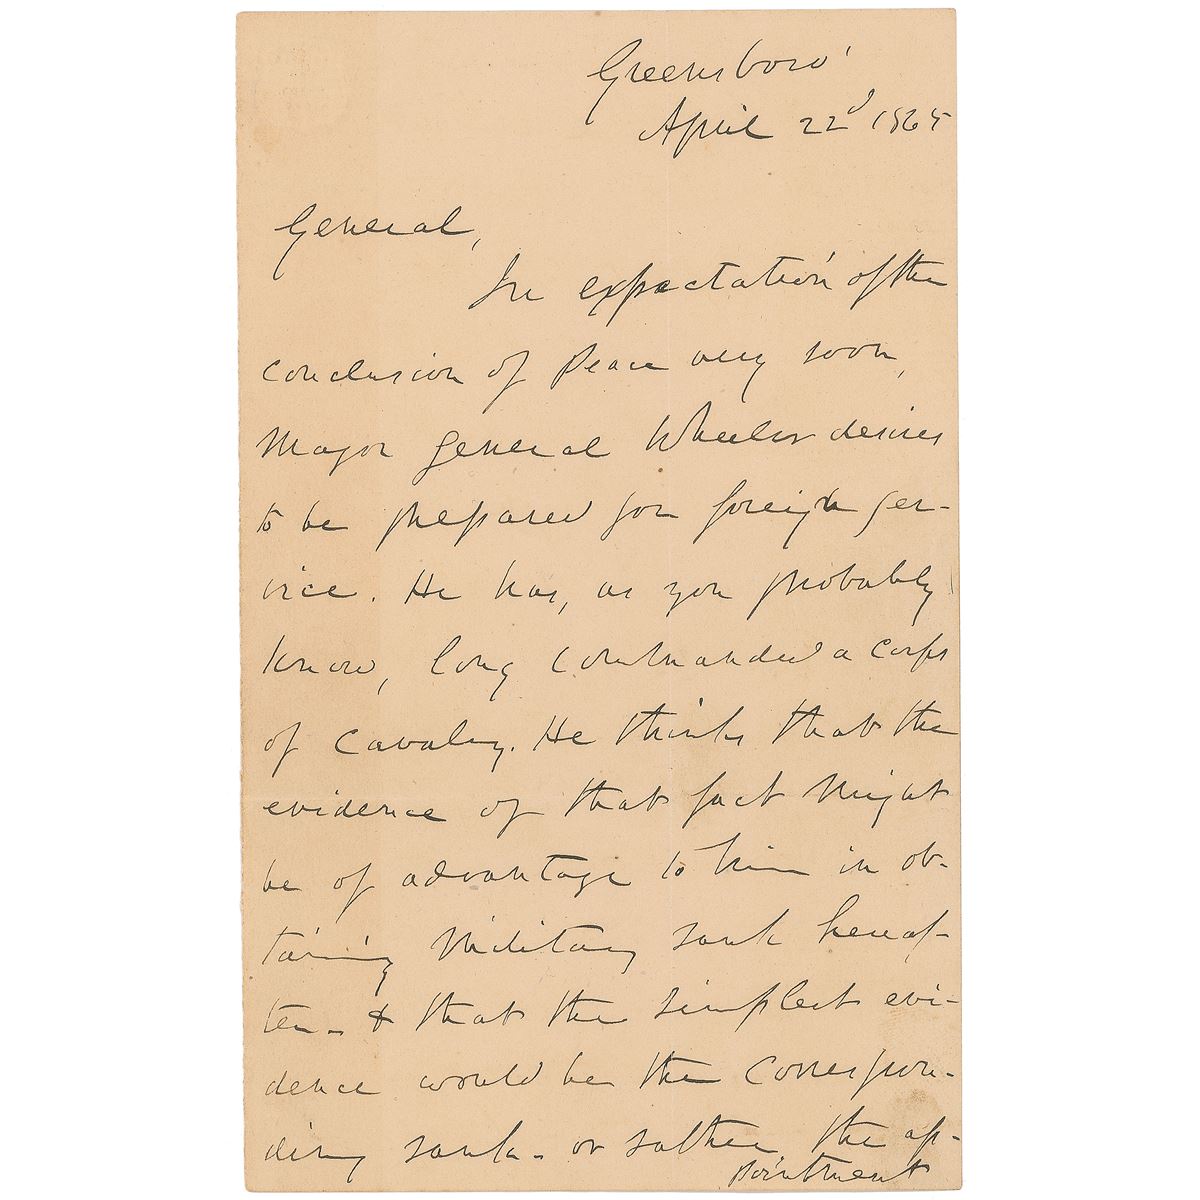 Greensboro'
April 22d 1865
General,
In expectation of the
conclusion of peace very soon,
Major General Wheeler desires
to be prepared for foreign ser-
vice. He has, as you probably
know, long commanded a corps
of cavalry. He thinks that the
evidence of that fact might
be of advantage to him in ob-
taining military rank hereaf-
ter - & that the simplest evi-
dence would be the correspon-
ding rank - or rather the ap-
pointment